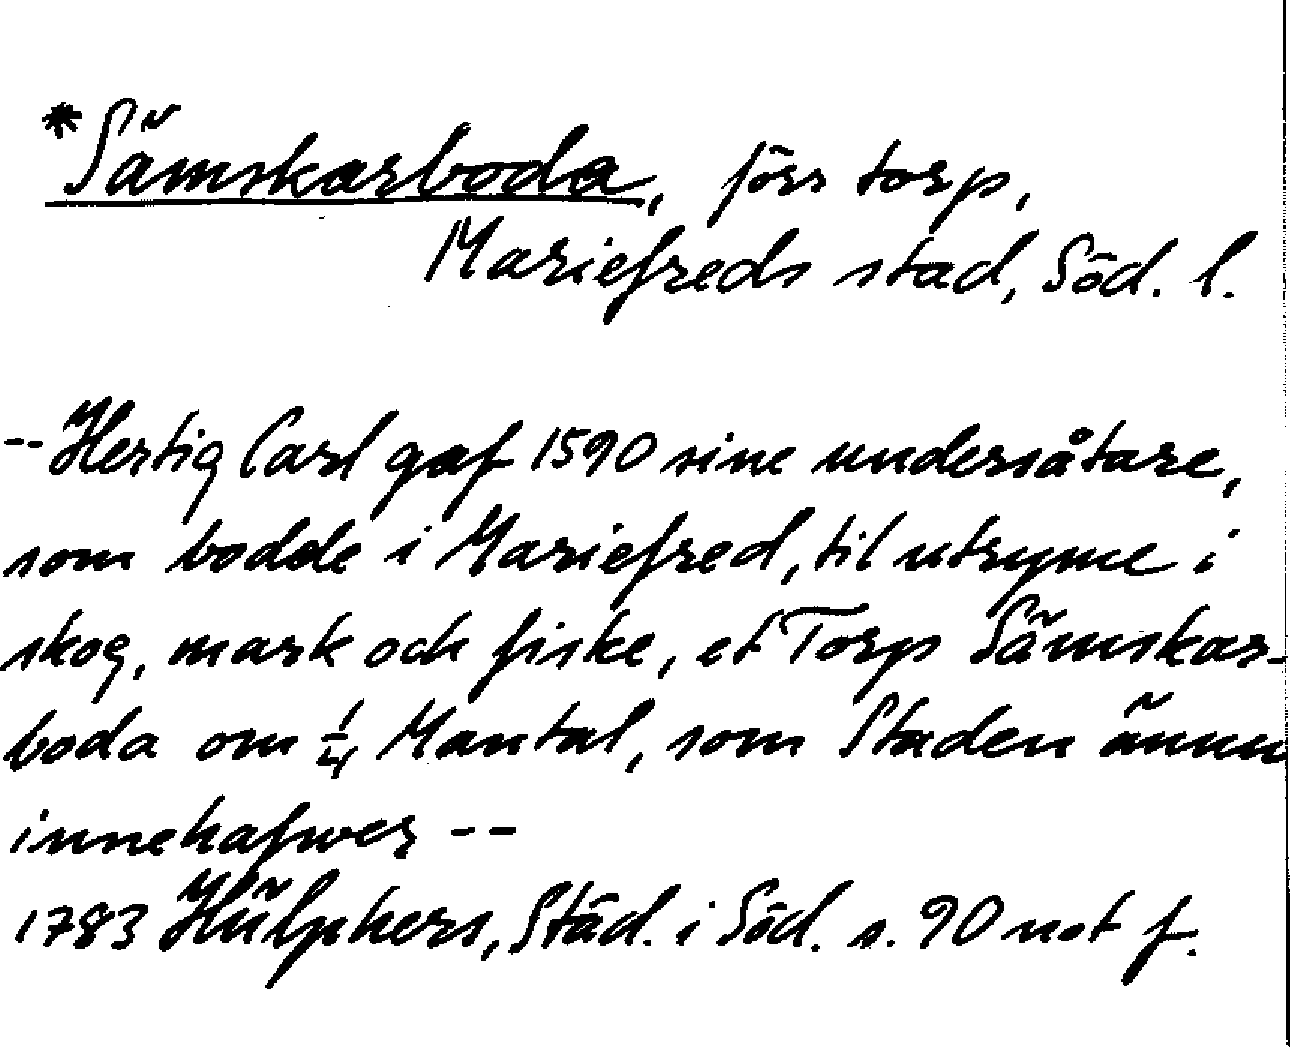 *Sämskarboda, förs torp,
Mariefreds stad, Söd. l.
-- Hertig Carl gaf 1590 sine undersåtare,
som bodde i Mariefred, til utryme i
skog, mark och fiske, et Torp Sämskar-
boda om 1/4 Mantal, som Staden ännu
innehafwer --
1783 Hülphers, Städ. i Söd. s. 90 not f.